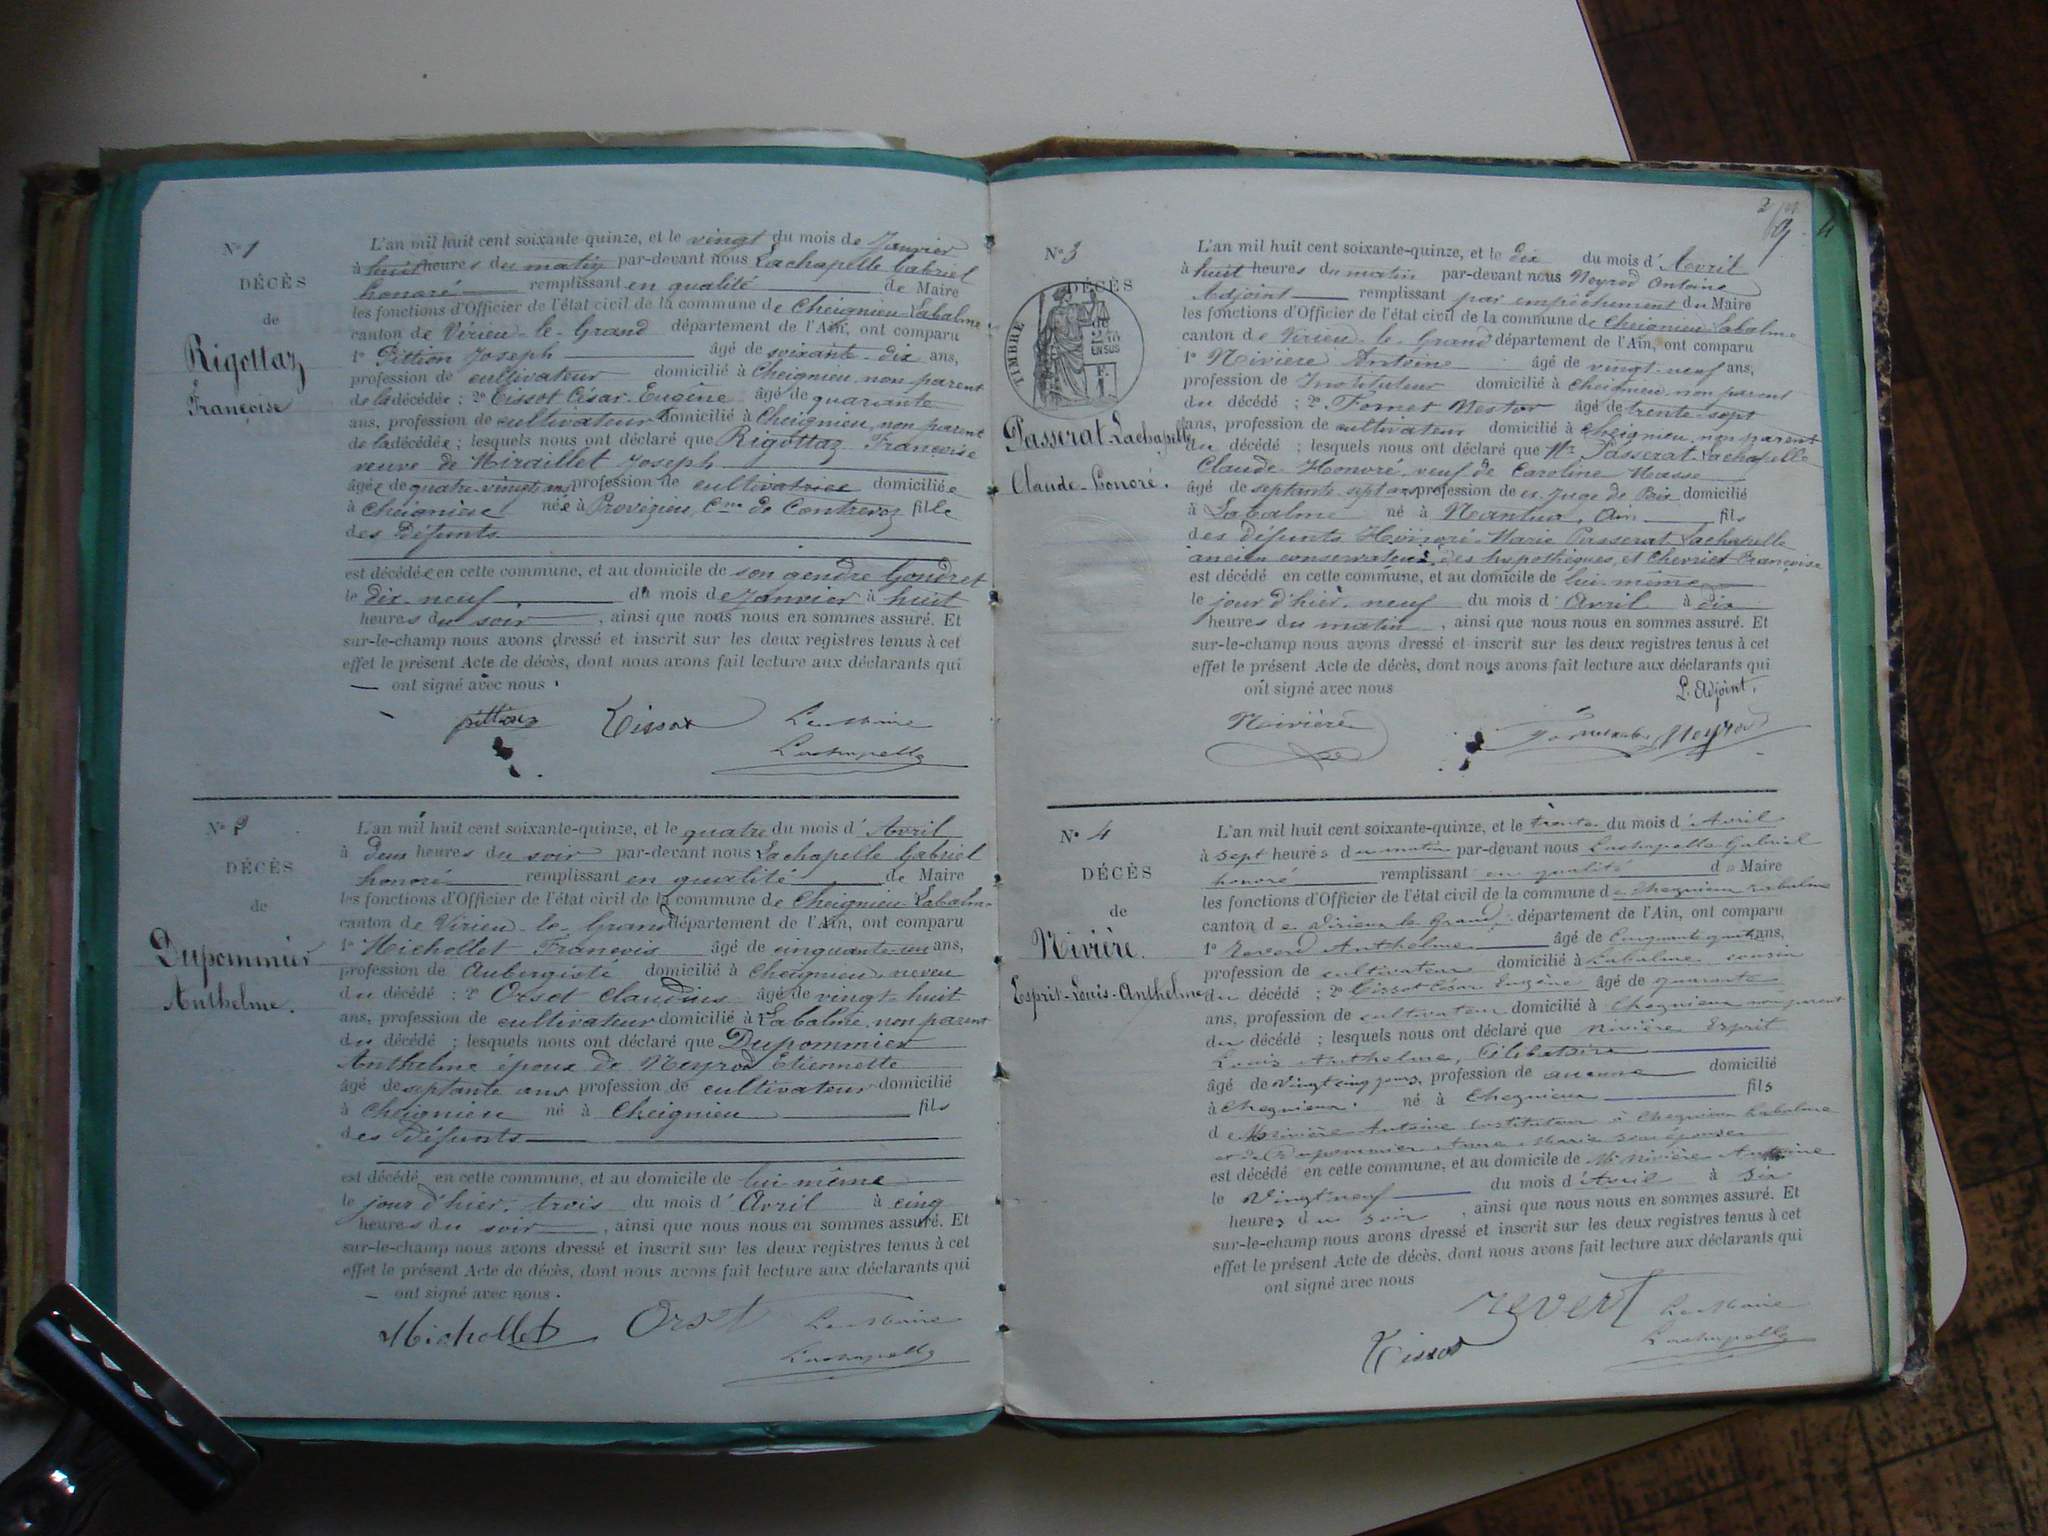 N° 1
DÉCÈS
de
Rigottaz
Françoise
L'an mil huit cent soixante-quinze, et le vingt du mois de Janvier
à huit heures du matin par-devant nous Lachapelle Gabriel
honoré remplissant en qualité de Maire
les fonctions d'Officier de l'état civil de la commune de Cheignieu-Labalme
canton de Virieu-le-Grand département de l'Ain, ont comparu
1° Pittion Joseph âgé de soixante-dix ans,
profession de cultivateur domicilié à Cheignieu, non parent
de la décédée ; 2° Tissot César-Eugène âgé de quarante
ans, profession de cultivateur domicilié à Cheignieu, non parent
de la décédée ; lesquels nous ont déclaré que Rigottaz Françoise
veuve de Miraillet Joseph
âgée de quatre-vingt ans profession de cultivatrice domiciliée
à Cheignieu née à Provizieu, Cne de Contrevoz fille
des Défunts
est décédée en cette commune, et au domicile de son gendre Gondret
le dix-neuf du mois de Janvier à huit
heures du soir, ainsi que nous nous en sommes assuré. Et
sur-le-champ nous avons dressé et inscrit sur les deux registres tenus à cet
effet le présent Acte de décès, dont nous avons fait lecture aux déclarants qui
ont signé avec nous.
pittion Tissot Le Maire
Lachapelle
N° 2
DÉCÈS
de
Dupommier
Anthelme.
L'an mil huit cent soixante-quinze, et le quatre du mois d'Avril
à deux heures du soir par-devant nous Lachapelle Gabriel
honoré remplissant en qualité de Maire
les fonctions d'Officier de l'état civil de la commune de Cheignieu-Labalme
canton de Virieu-le-Grand département de l'Ain, ont comparu
1° Michollet François âgé de cinquante-un ans,
profession de Aubergiste domicilié à Cheignieu neveu
du décédé ; 2° Orset Claudius âgé de vingt-huit
ans, profession de cultivateur domicilié à Labalme, non parent
du décédé ; lesquels nous ont déclaré que Dupommier
Anthelme époux de Neyrod Etiennette
âgé de septante ans profession de cultivateur domicilié
à Cheignieu né à Cheignieu fils
des Défunts
est décédé en cette commune, et au domicile de lui-même
le jour d'hier, trois du mois d'Avril à cinq
heures du soir, ainsi que nous nous en sommes assuré. Et
sur-le-champ nous avons dressé et inscrit sur les deux registres tenus à cet
effet le présent Acte de décès, dont nous avons fait lecture aux déclarants qui
ont signé avec nous.
Michollet Orset Le Maire
Lachapelle
N° 3
DÉCÈS
de
TIMBRE
EN SUS
Passerat-Lachapelle
Claude-Honoré.
L'an mil huit cent soixante-quinze, et le dix du mois d'Avril
à huit heures du matin par-devant nous Neyrod Antoine
Adjoint remplissant par empêchement du Maire
les fonctions d'Officier de l'état civil de la commune de Cheignieu Labalme
canton de Virieu-le-Grand département de l'Ain, ont comparu
1° Nivière Antoine âgé de vingt-neuf ans,
profession de Instituteur domicilié à Cheignieu non parent
du décédé ; 2° Fornet Nestor âgé de trente-sept
ans, profession de cultivateur domicilié à Cheignieu, non parent
du décédé ; lesquels nous ont déclaré que Mr Passerat-Lachapelle
Claude-Honoré veuf de Caroline Masse
âgé de septante-sept ans profession de ex Juge de Paix domicilié
à Labalme né à Nantua, Ain fils
des défunts Honoré-Marie Passerat Lachapelle
ancien conservateur des hypothèques, et Chevrier Françoise
est décédé en cette commune, et au domicile de lui-même
le jour d'hier, neuf du mois d'Avril à dix
heures du matin, ainsi que nous nous en sommes assuré. Et
sur-le-champ nous avons dressé et inscrit sur les deux registres tenus à cet
effet le présent Acte de décès, dont nous avons fait lecture aux déclarants qui
ont signé avec nous
L'Adjoint,
Nivière Neyrod
N° 4
DÉCÈS
de
Nivière.
Esprit-Louis-Anthelme
L'an mil huit cent soixante-quinze, et le trente du mois d'Avril
à sept heures du matin par-devant nous Lachapelle Gabriel
honoré remplissant en qualité de Maire
les fonctions d'Officier de l'état civil de la commune de Cheignieu Labalme
canton de Virieu le Grand, département de l'Ain, ont comparu
1° Anthelme âgé de Cinquante quatre ans,
profession de cultivateur domicilié à Labalme cousin
du décédé ; 2° Tissot César Eugène âgé de quarante
ans, profession de cultivateur domicilié à Cheignieu non parent
du décédé ; lesquels nous ont déclaré que Nivière Esprit
Louis Anthelme, Célibataire
âgé de Vingt cinq jours, profession de aucune domicilié
à Cheignieu né à Cheignieu fils
de Nivière Antoine Instituteur à Cheignieu Labalme
et de Dupommier Anne Marie son épouse
est décédé en cette commune, et au domicile de Mr Nivière Antoine
le Vingt neuf du mois d'Avril à Six
heures du soir, ainsi que nous nous en sommes assuré. Et
sur-le-champ nous avons dressé et inscrit sur les deux registres tenus à cet
effet le présent Acte de décès, dont nous avons fait lecture aux déclarants qui
ont signé avec nous
revert Le Maire
Tissot Lachapelle